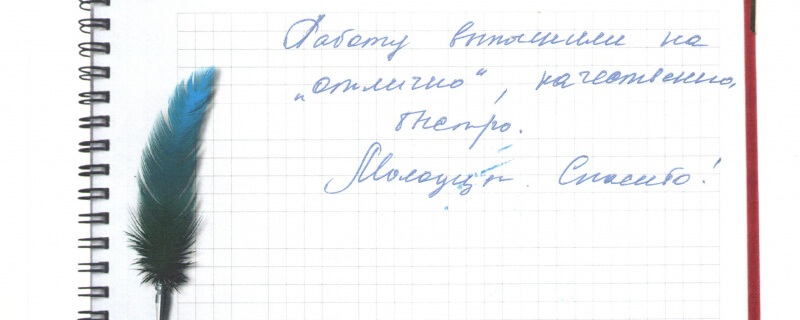 Работу выполнили на
"отлично", качественно,
быстро.
Молодцы. Спасибо!